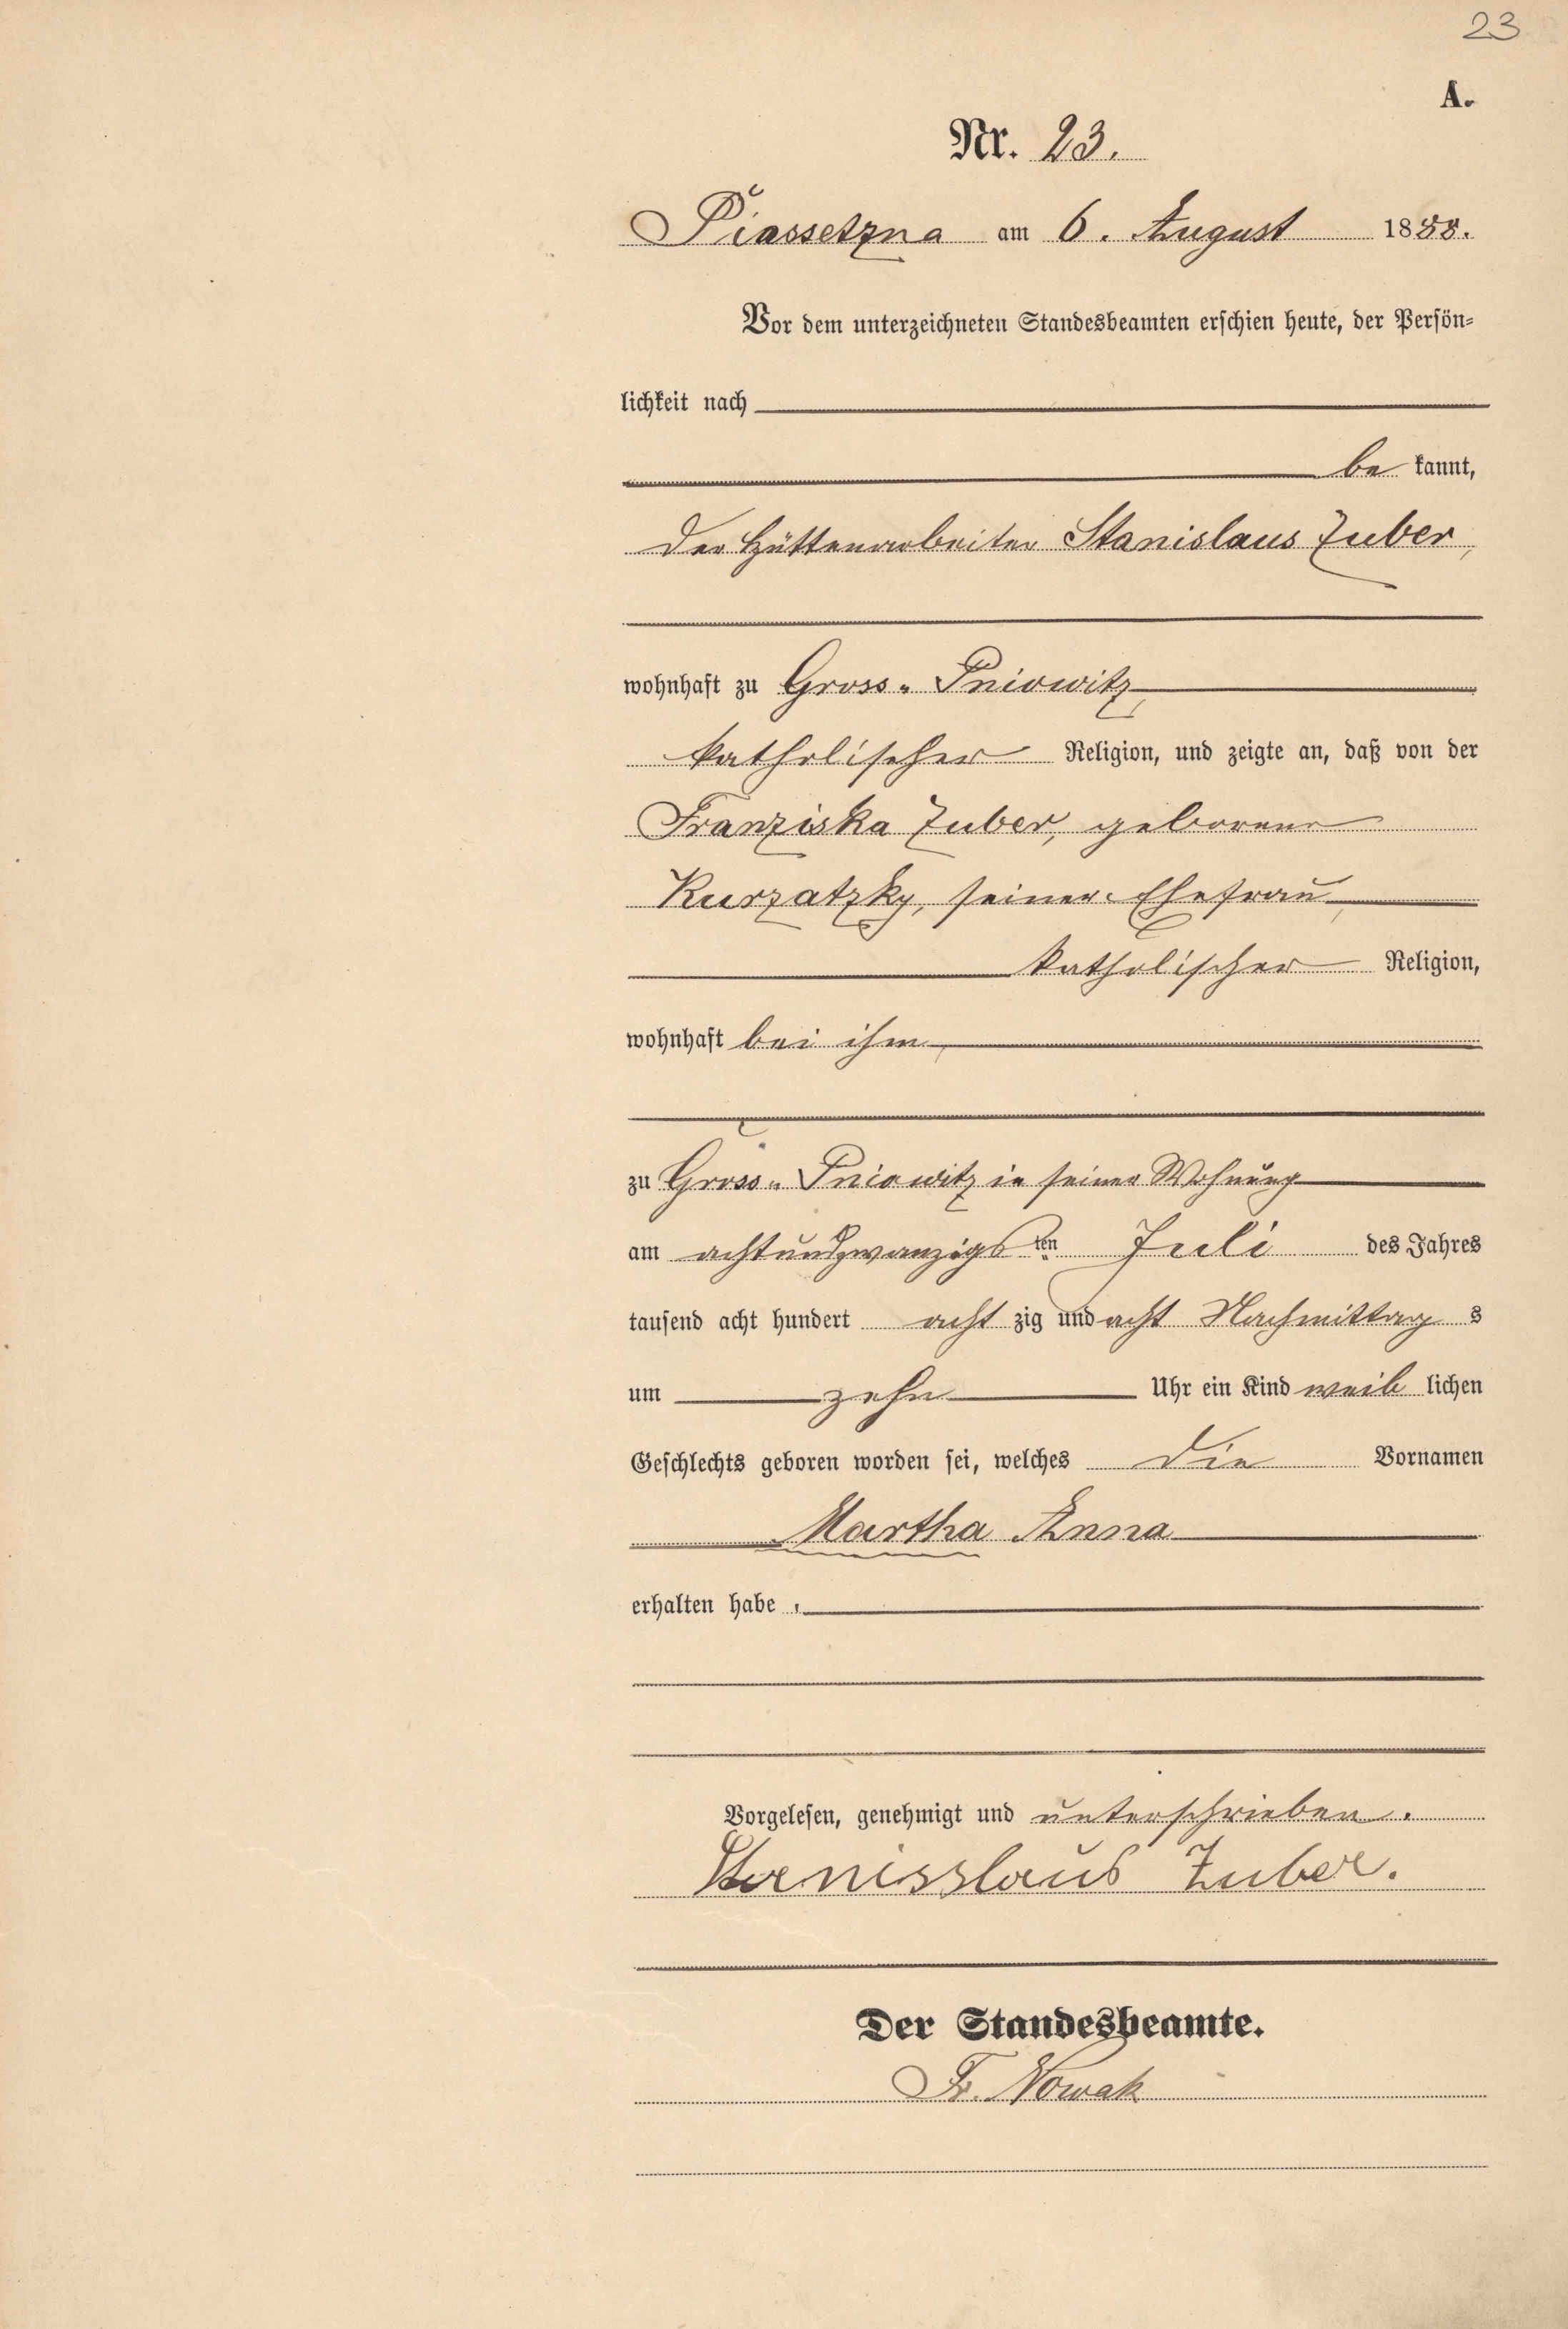 23
A.
Nr. 23.
Piassetzna am 6. August 1888.
Vor dem unterzeichneten Standesbeamten erschien heute, der Persön=
lichkeit nach
be kannt,
der Hüttenarbeiter Stanislaus Zuber,
wohnhaft zu Gross-Pniowitz,
katholischer Religion, und zeigte an, daß von der
Franziska Zuber, geborene
Kurzatzky, seiner Ehefrau,
katholischer Religion,
wohnhaft bei ihm,
zu Gross-Pniowitz in seiner Wohnung
am achtundzwanzigsten Juli des Jahres
tausend acht hundert acht zig und acht Nachmittag s
um zehn Uhr ein Kind weib lichen
Geschlechts geboren worden sei, welches die Vornamen
Martha Anna
erhalten habe.
Vorgelesen, genehmigt und unterschrieben.
Stanisslaus Zuber.
Der Standesbeamte.
Fr. Nowak